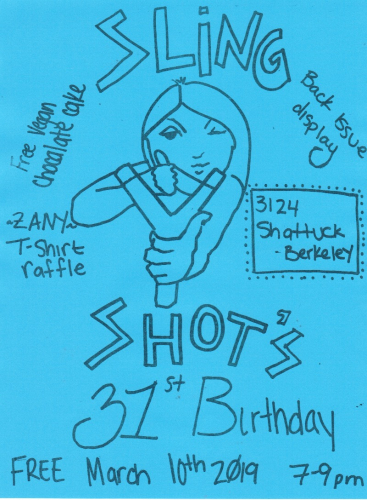 SLiNG
Free Vegan
chocolate cake
Back issue
display
~ZANY~
T-Shirt
raffle
3124
Shattuck
-Berkeley
SHOT'S
31st Birthday
FREE March 10th 2019 7-9pm